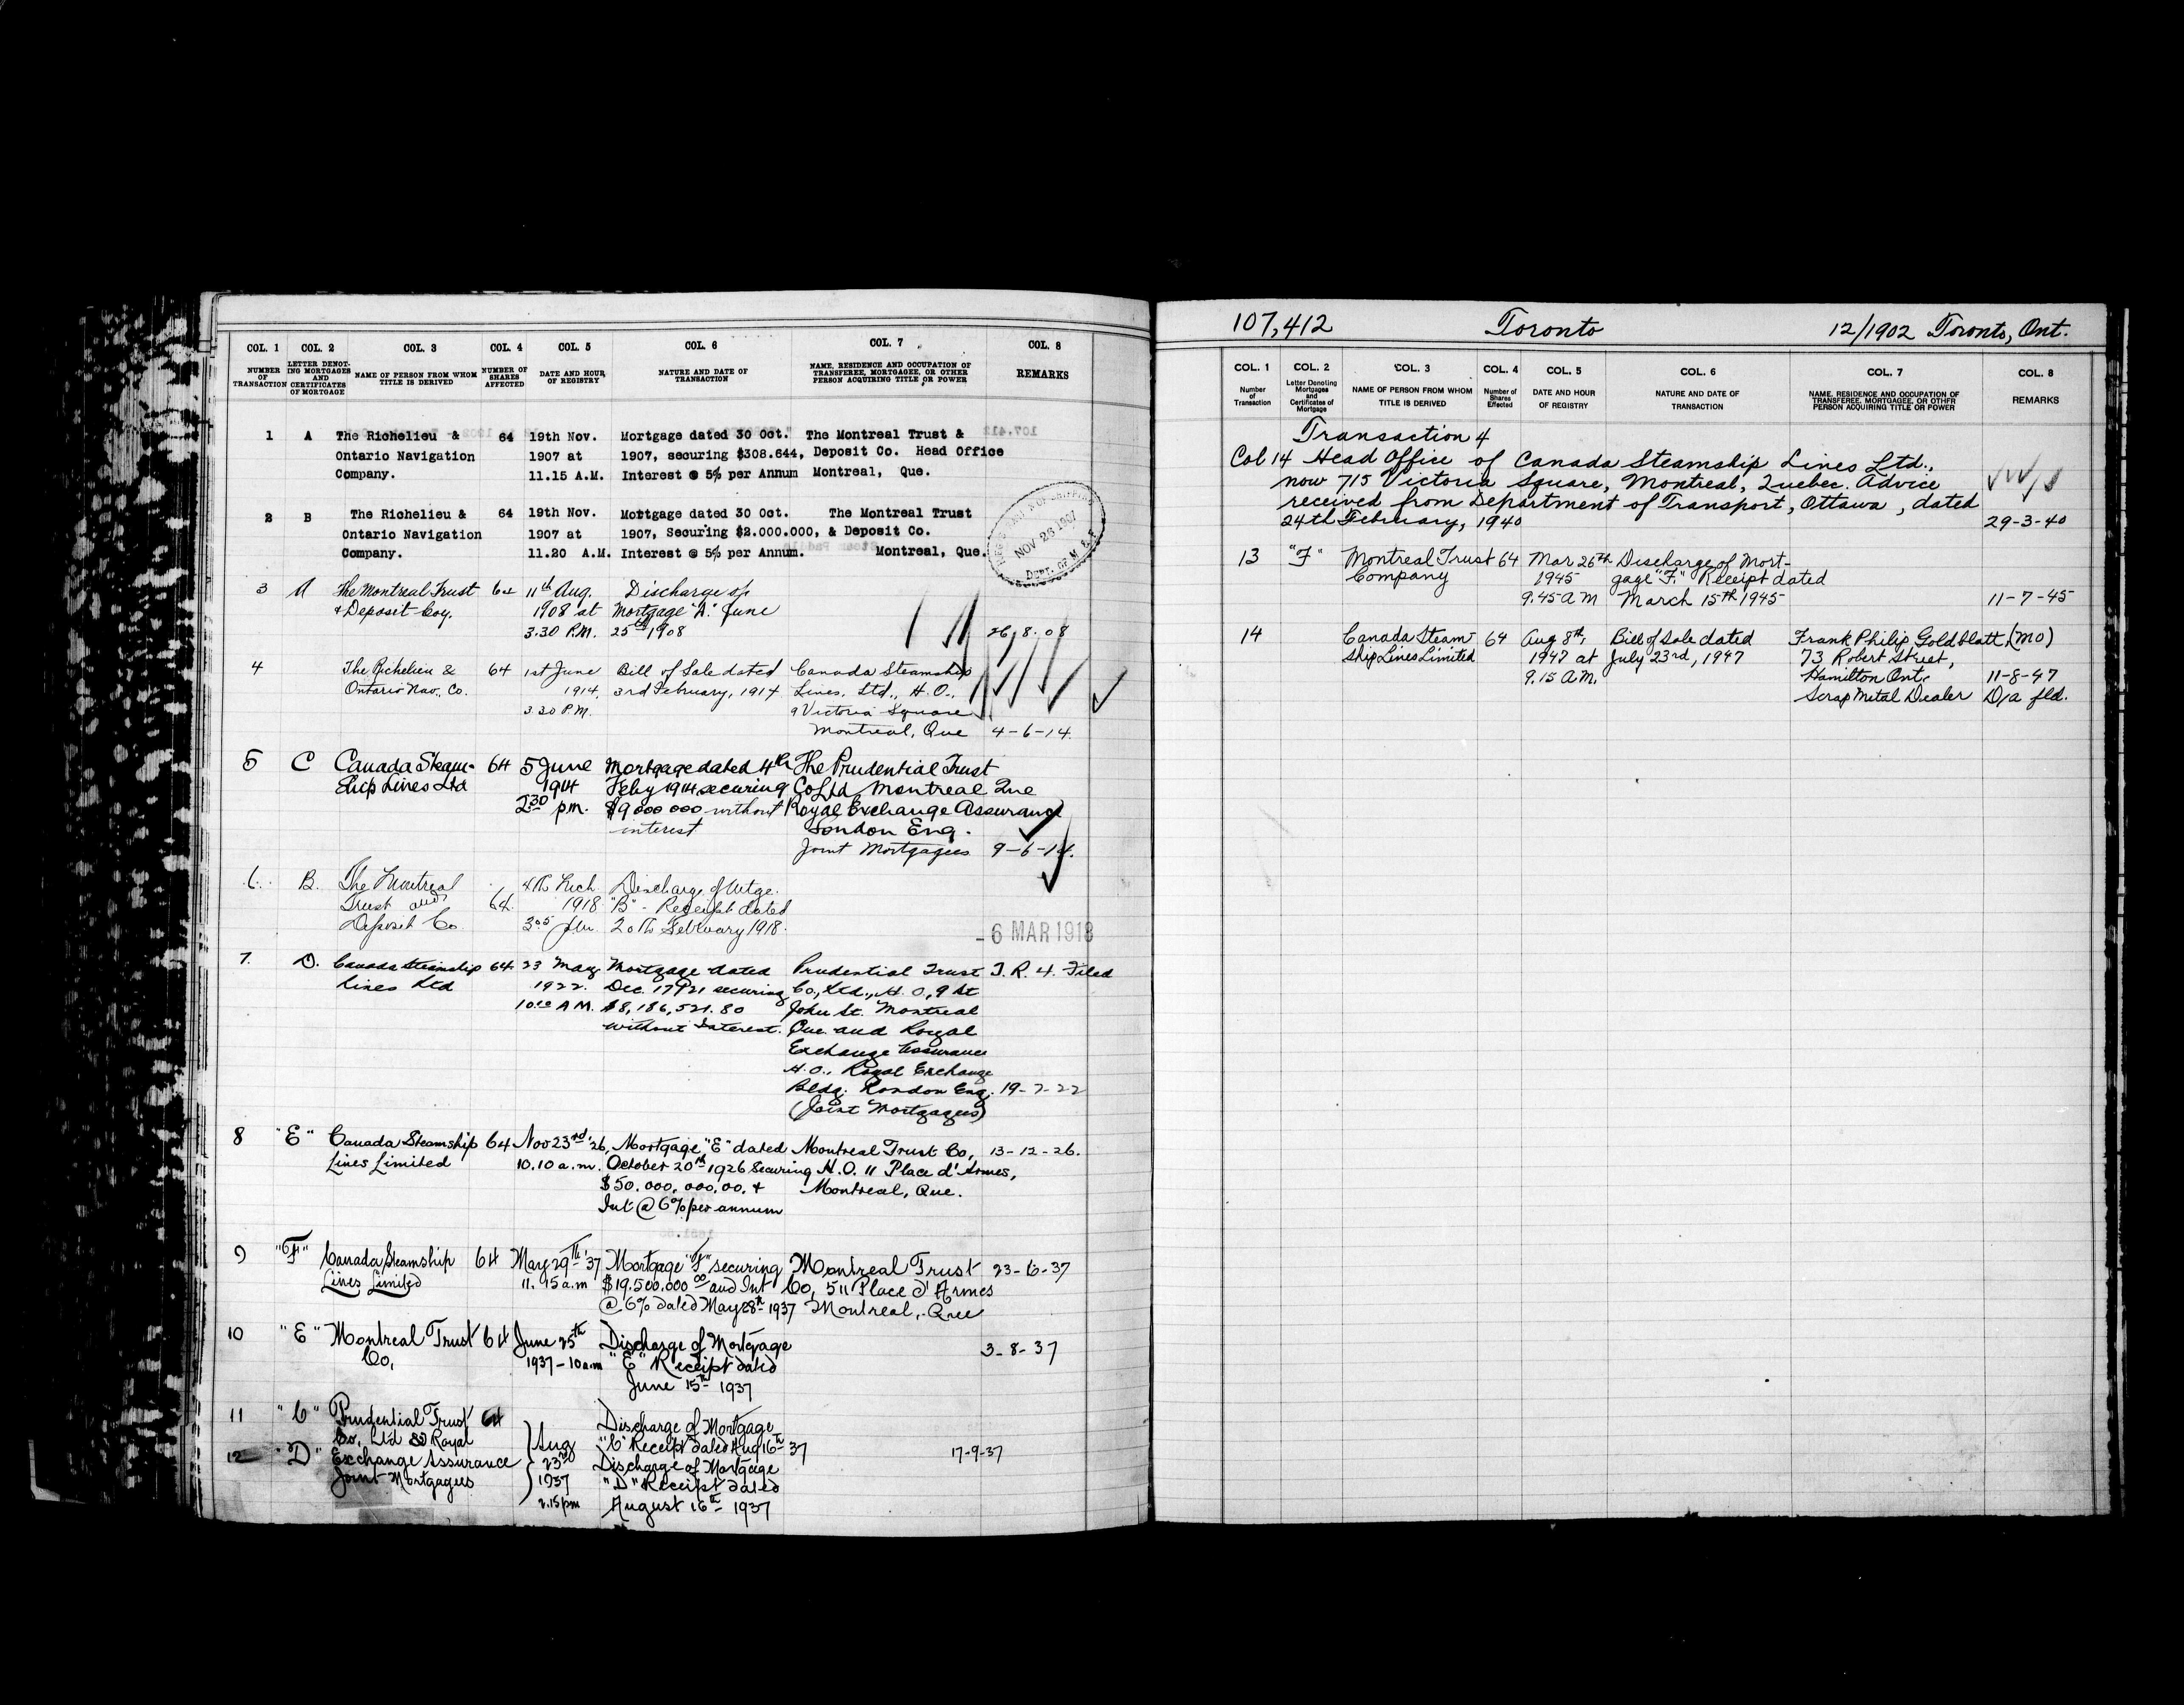 COL. 1 COL. 2 COL. 3 COL. 4 COL. 5 COL. 6 COL. 7 COL. 8
NUMBER OF TRANSACTION LETTER DENOTING MORTGAGES AND CERTIFICATES OF MORTGAGE NAME OF PERSON FROM WHOM TITLE IS DERIVED NUMBER OF SHARES AFFECTED DATE AND HOUR OF REGISTRY NATURE AND DATE OF TRANSACTION NAME, RESIDENCE AND OCCUPATION OF TRANSFEREE, MORTGAGEE, OR OTHER PERSON ACQUIRING TITLE OR POWER REMARKS
1 A The Richelieu & 64 19th Nov. Mortgage dated 30 Oct. The Montreal Trust &
Ontario Navigation 1907 at 1907, securing $308.644, Deposit Co. Head Office
Company. 11.15 A.M. Interest @ 5% per Annum Montreal, Que.
2 B The Richelieu & 64 19th Nov. Mortgage dated 30 Oct. The Montreal Trust
Ontario Navigation 1907 at 1907, Securing $2.000.000, & Deposit Co.
Company. 11.20 A.M. Interest @ 5% per Annum. Montreal, Que.
NOV 26 1907
DEPT. OF M. & F.
3 A The Montreal Trust 64 11th Aug. Discharge of
& Deposit Coy. 1908 at Mortgage "A." June
3.30 P.M. 25th 1908 26.8.08
4 The Richelieu & 64 1st June Bill of Sale dated Canada Steamship
Ontario Nav. Co. 1914, 3rd February, 1914 Lines. Ltd., H.O.,
3.20 P.M. 9 Victoria Square
Montreal, Que 4-6-14.
5 C Canada Steam- 64 5 June Mortgage dated 4th The Prudential Trust
Ship Lines Ltd 1914 Feby 1914 securing Co Ltd Montreal Que
2.30 pm. $9000000 without Royal Exchange Assurance
interest London Eng.
Joint Mortgagees 9-6-14.
6. B. The Montreal 4th Mch Discharge of Mtge.
Trust and 64. 1918 "B" - Receipt dated
Deposit Co 3.05 pm 20th February 1918.
- 6 MAR 1918
7. D. Canada Steamship 64 23 May Mortgage dated Prudential Trust T.R.4. Filed
Lines Ltd 1922. Dec. 17 1921 securing Co., Ltd., H.O., 9 St
10.00 A.M. $8,186,521.80 John St. Montreal
without Interest. Que. and Royal
Exchange Assurance
H.O., Royal Exchange
Bldg. London Eng. 19-7-22
(Joint Mortgagees)
8 "E" Canada Steamship 64 Nov 23rd '26, Mortgage "E" dated Montreal Trust Co, 13-12-26.
Lines Limited 10.10 a.m. October 20th 1926 securing H.O. 11 Place d'Armes,
$50,000,000.00. + Montreal, Que.
Int @ 6% per annum
9 "F" Canada Steamship 64 May 29th '37 Mortgage "F" securing Montreal Trust 23-6-37
Lines Limited 11.45 a.m $19,500.000 00 and Int Co, 511 Place d'Armes
@ 6% dated May 28th 1937 Montreal, Que
10 "E" Montreal Trust 64 June 25th Discharge of Mortgage
Co, 1937-10 a.m "E" Receipt dated 3-8-37
June 15th 1937
11 "C" Prudential Trust 64 Discharge of Mortgage
Co, Ltd & Royal Aug "C" Receipt dated Aug 16th 37 17-9-37
12 "D" Exchange Assurance 23rd Discharge of Mortgage
Joint Mortgagees 1937 "D" Receipt dated
2.15 pm August 16th 1937
107,412 Toronto 12/1902 Toronto, Ont.
COL. 1 COL. 2 COL. 3 COL. 4 COL. 5 COL. 6 COL. 7 COL. 8
Number of Transaction Letter Denoting Mortgages and Certificates of Mortgage NAME OF PERSON FROM WHOM TITLE IS DERIVED Number of Shares Effected DATE AND HOUR OF REGISTRY NATURE AND DATE OF TRANSACTION NAME, RESIDENCE AND OCCUPATION OF TRANSFEREE, MORTGAGEE, OR OTHER PERSON ACQUIRING TITLE OR POWER REMARKS
Transaction 4
Col 14 Head Office of Canada Steamship Lines Ltd.,
now 715 Victoria Square, Montreal, Quebec. Advice
received from Department of Transport, Ottawa, dated
24th February, 1940 29-3-40
13 "F" Montreal Trust 64 Mar 26th Discharge of Mort-
Company 1945 gage "F." Receipt dated
9.45 A M March 15th 1945 11-7-45
14 Canada Steam- 64 Aug 8th, Bill of Sale dated Frank Philip Goldblatt (MO)
ship Lines Limited 1947 at July 23rd, 1947 73 Robert Street,
9.15 A.M. Hamilton Ont. 11-8-47
Scrap Metal Dealer D/a fld.